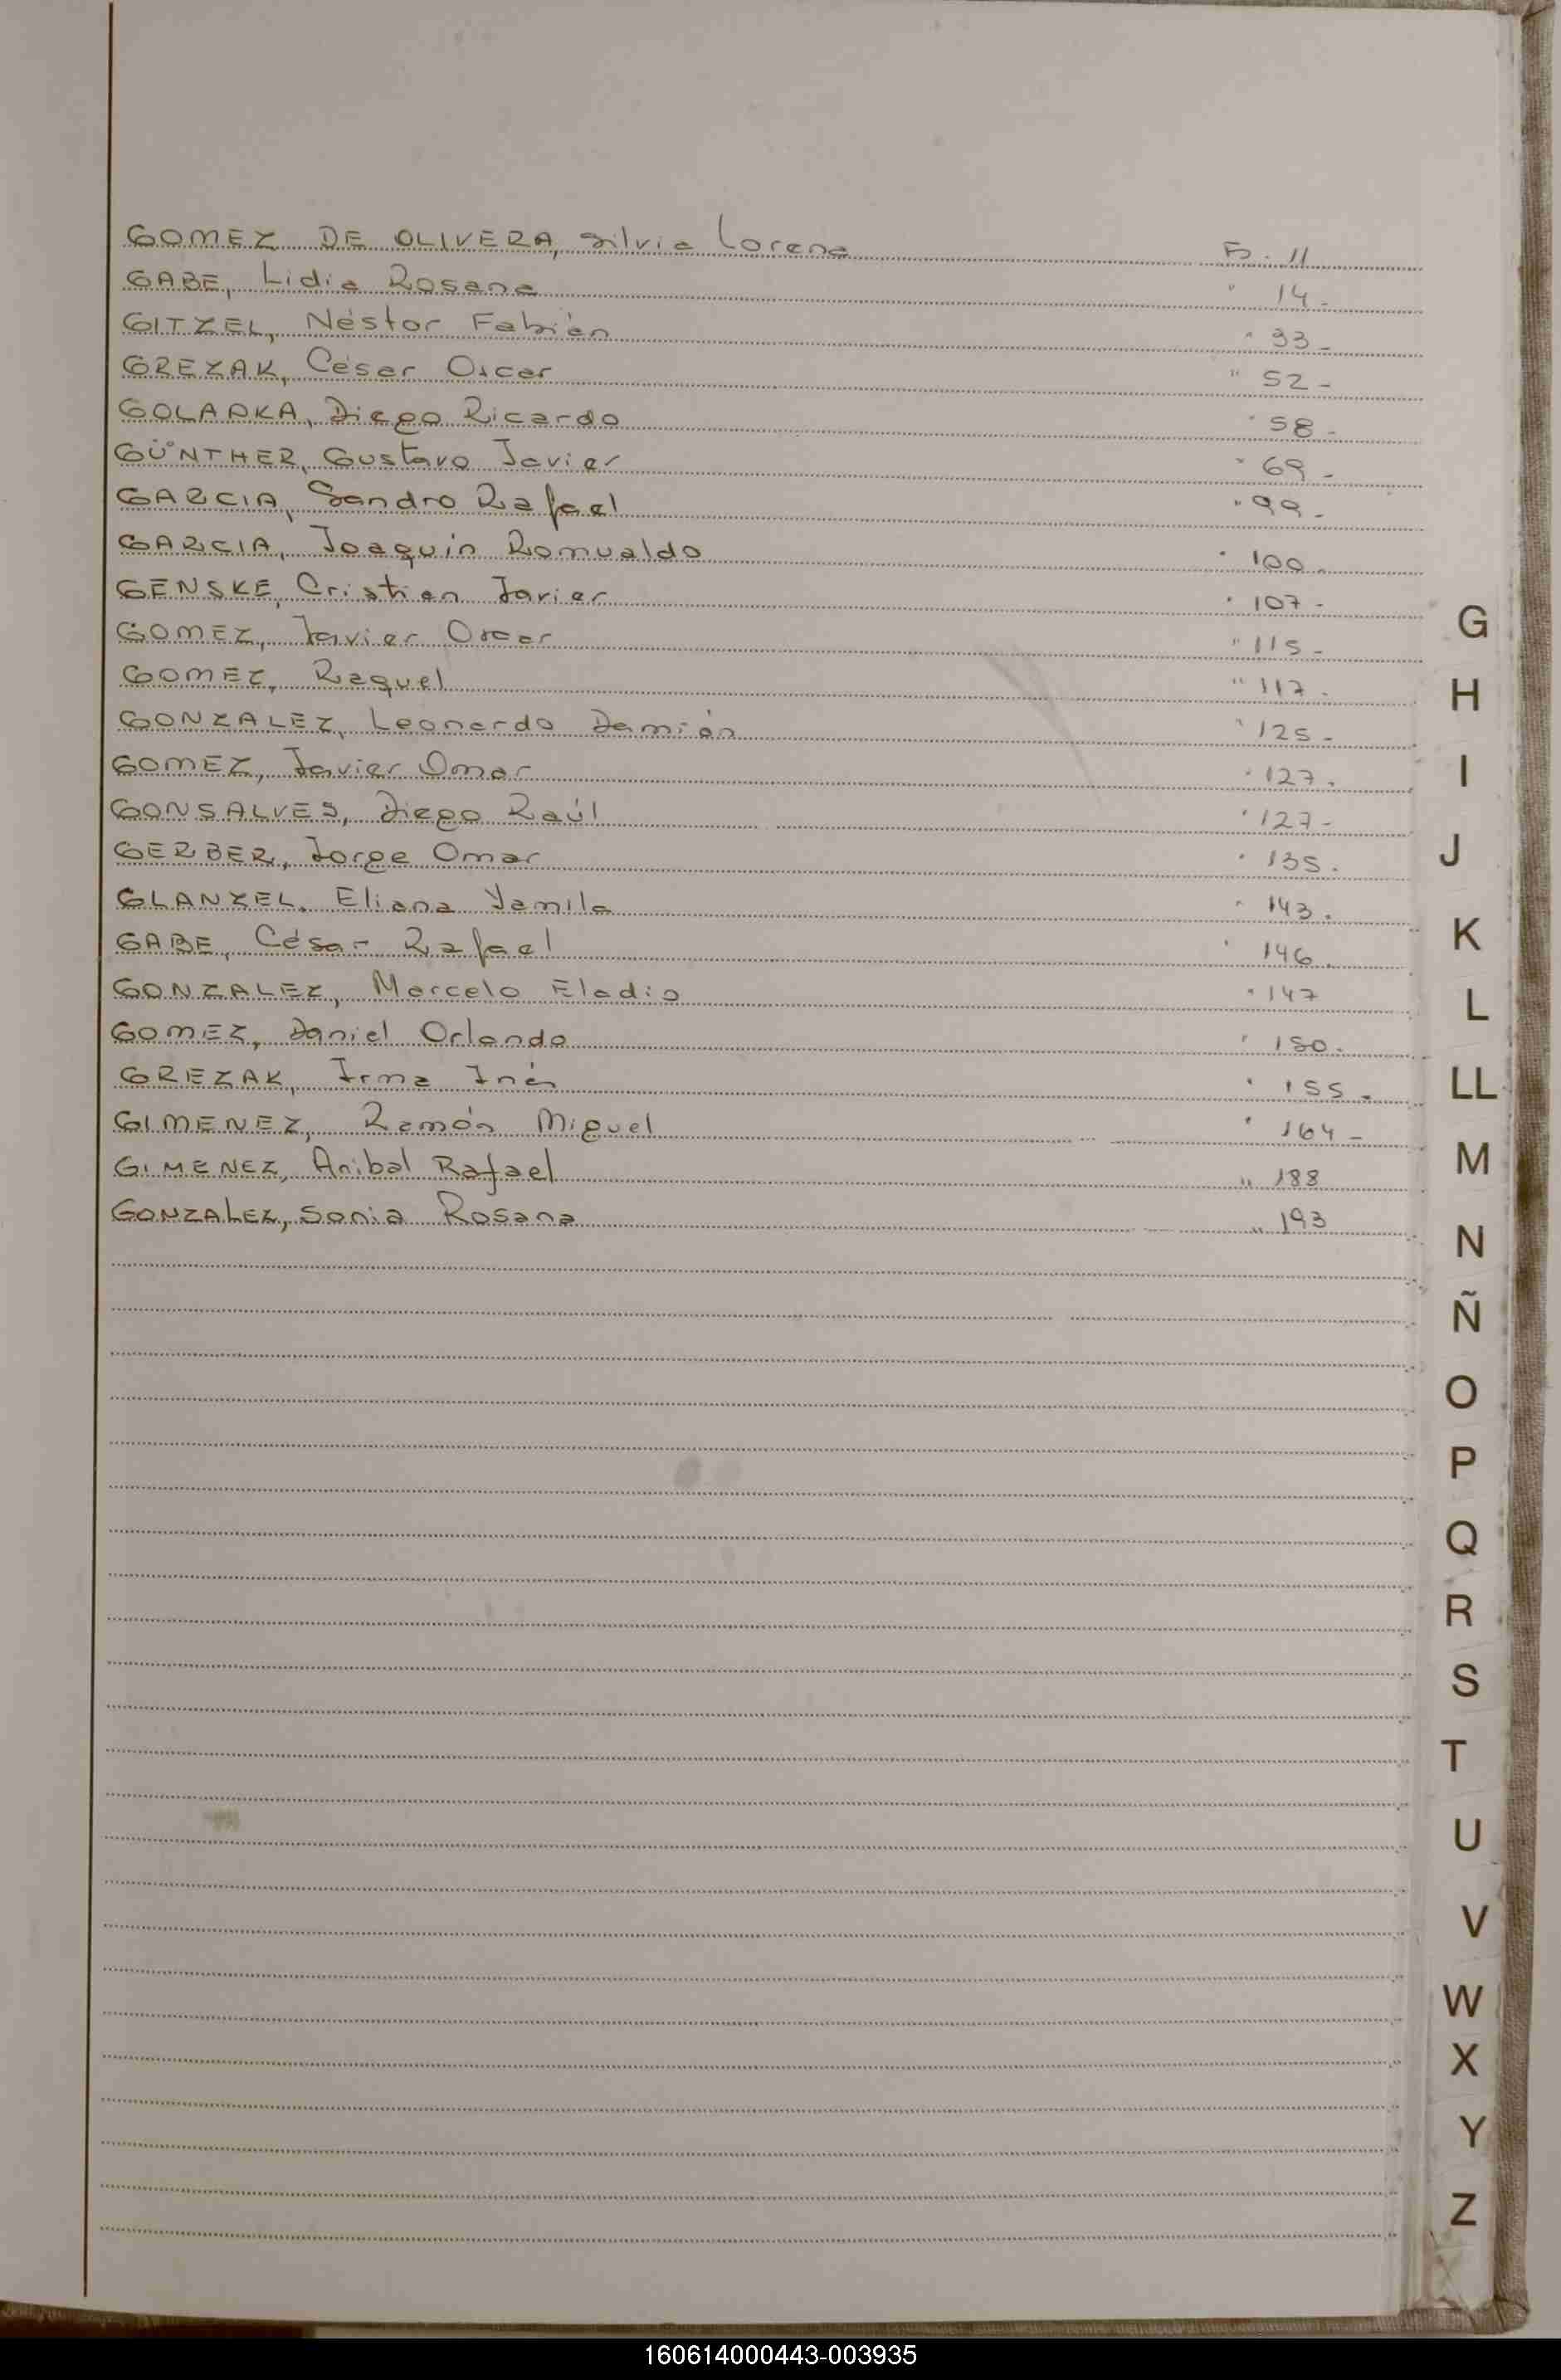 GOMEZ DE OLIVERA, Silvia Lorena Fº. 11
GABE, Lidia Rosana " 14-
GITZEL, Néstor Fabián " 33-
GREZAK, César Oscar " 52-
GOLADKA, Diego Ricardo " 58-
GÜNTHER, Gustavo Javier " 69-
GARCIA, Sandro Rafael " 99-
GARCIA, Joaquín Romualdo " 100.
GENSKE, Cristian Javier " 107-
GOMEZ, Javier Oscar " 115-
GOMEZ, Raquel " 117.
GONZALEZ, Leonardo Damián " 125-
GOMEZ, Javier Omar " 127.
GONSALVES, Diego Raúl " 127-
GERBER, Jorge Omar " 135.
GLANZEL, Eliana Yamila " 143.
GABE, César Rafael " 146.
GONZALEZ, Marcelo Eladio " 147
GOMEZ, Daniel Orlando " 150.
GREZAK, Irma Inés " 155.
GIMENEZ, Ramón Miguel " 164-
GIMENEZ, Anibal Rafael " 188
GONZALEZ, Sonia Rosana " 193
G
H
I
J
K
L
LL
M
N
Ñ
O
P
Q
R
S
T
U
V
W
X
Y
Z
160614000443-003935